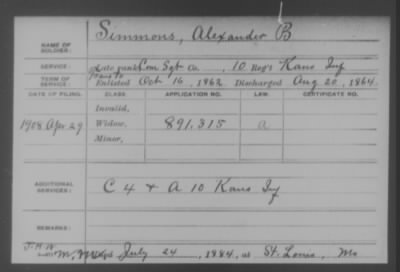 NAME OF SOLDIER: Simmons, Alexander B
SERVICE: Late rank Com Sgt Co. , 10 Reg't Kans Inf
TERM OF SERVICE: Enlisted Oct 16, 1862. Discharged Aug 20, 1864.
DATE OF FILING. CLASS. APPLICATION NO. LAW. CERTIFICATE NO.
Invalid,
1908 Apr 29 Widow, 891.315 a
Minor,
ADDITIONAL SERVICES: C 4 & A 10 Kans Inf
REMARKS:
July 24, 1884, at St. Louis, Mo